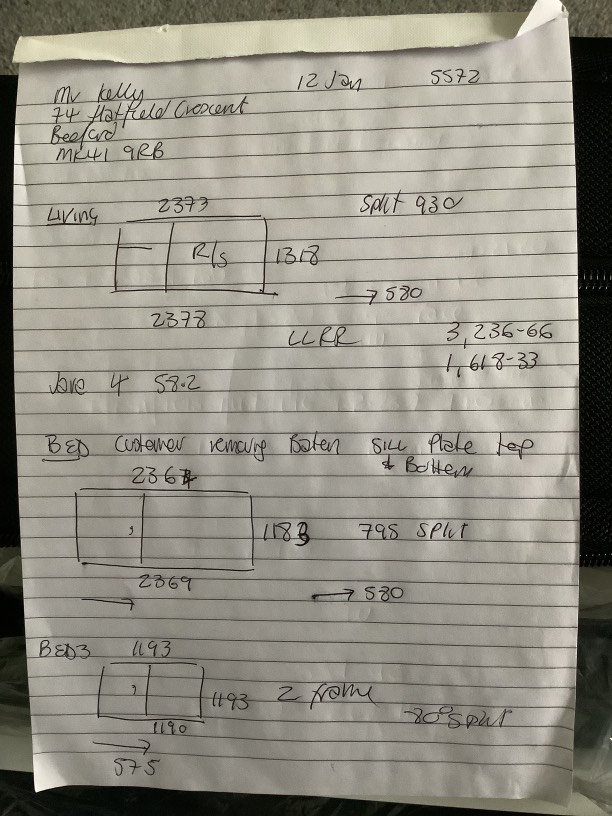 Mr Kelly
12 Jan
5572
74 Hatfield Crescent
Bedford
MK41 9RB
Living
2373
Split 930
R/S
1318
→ 580
2378
LLRR
3,236-66
1,618-33
4 58.2
BED Customer removing Baten Sill Plate top
& Bottem
2367
1183
795 Split
2369
→ 580
BED3
1193
1193
2 frame
Split
1190
575